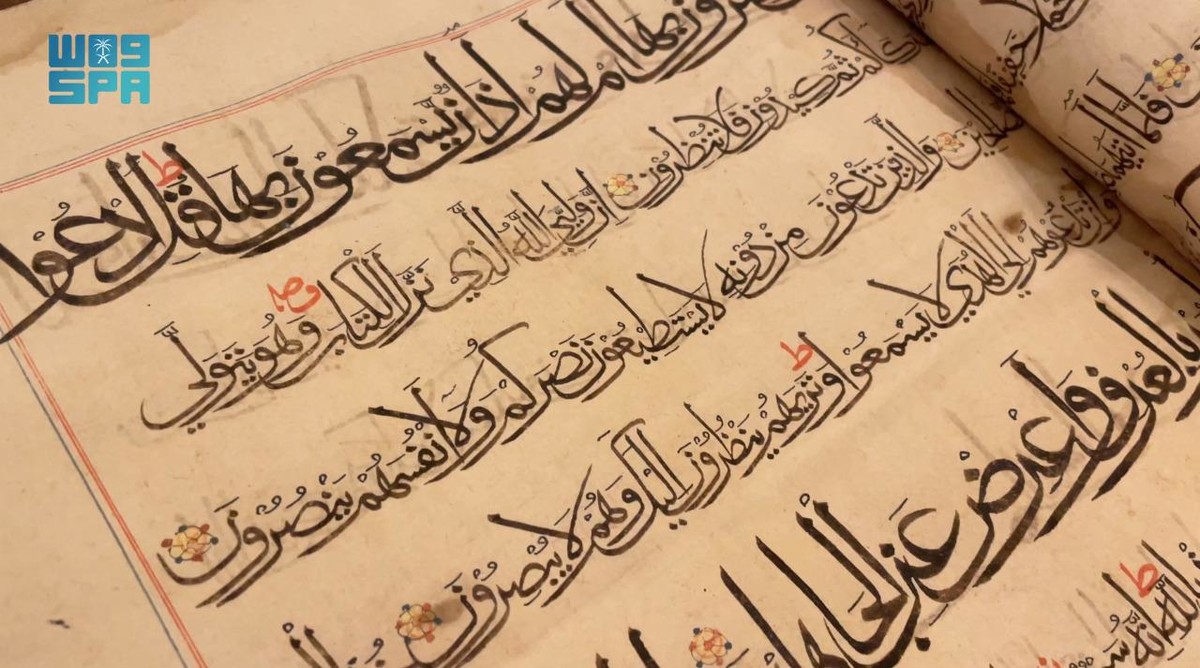 WAS
SPA
بِهَا أَمْ لَهُمْ اٰذَانٌ يَسْمَعُونَ بِهَا ط قُلِ ادْعُوا
ثُمَّ كِيدُونِ فَلَا تُنْظِرُونِ إِنَّ وَلِيِّيَ اللهُ الَّذِي نَزَّلَ الْكِتَابَ وَهُوَ يَتَوَلَّى
الصّٰلِحِينَ وَالَّذِينَ تَدْعُونَ مِنْ دُونِهِ لَا يَسْتَطِيعُونَ نَصْرَكُمْ وَلَا أَنْفُسَهُمْ يَنْصُرُونَ
وَإِنْ تَدْعُوهُمْ إِلَى الْهُدَى لَا يَسْمَعُوا ط وَتَرٰيهُمْ يَنْظُرُونَ إِلَيْكَ وَهُمْ لَا يُبْصِرُونَ
بِالْعُرْفِ وَأَعْرِضْ عَنِ
ط إِنَّهُ
فَلَمَّا اٰتٰيهُمَا